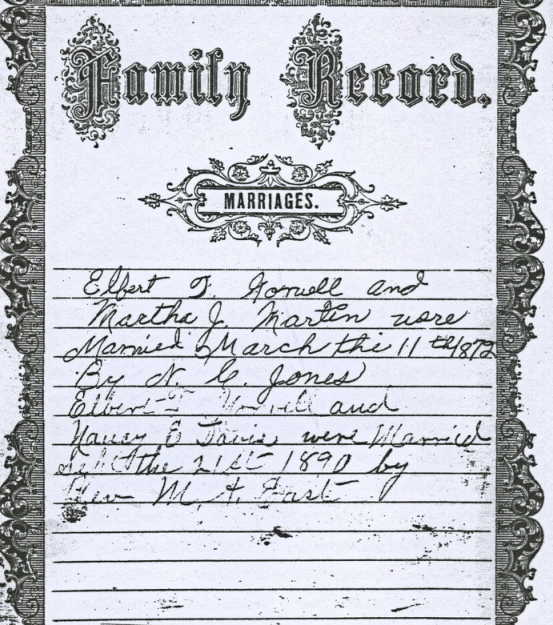 Family Record.
MARRIAGES.
Elbert T. and
Martha J. Martin were
Married March the 11 th 1872
By N. C. Jones
Elbert T and
Nancy E Davis were Married
the 21st 1890 by
Rev M.